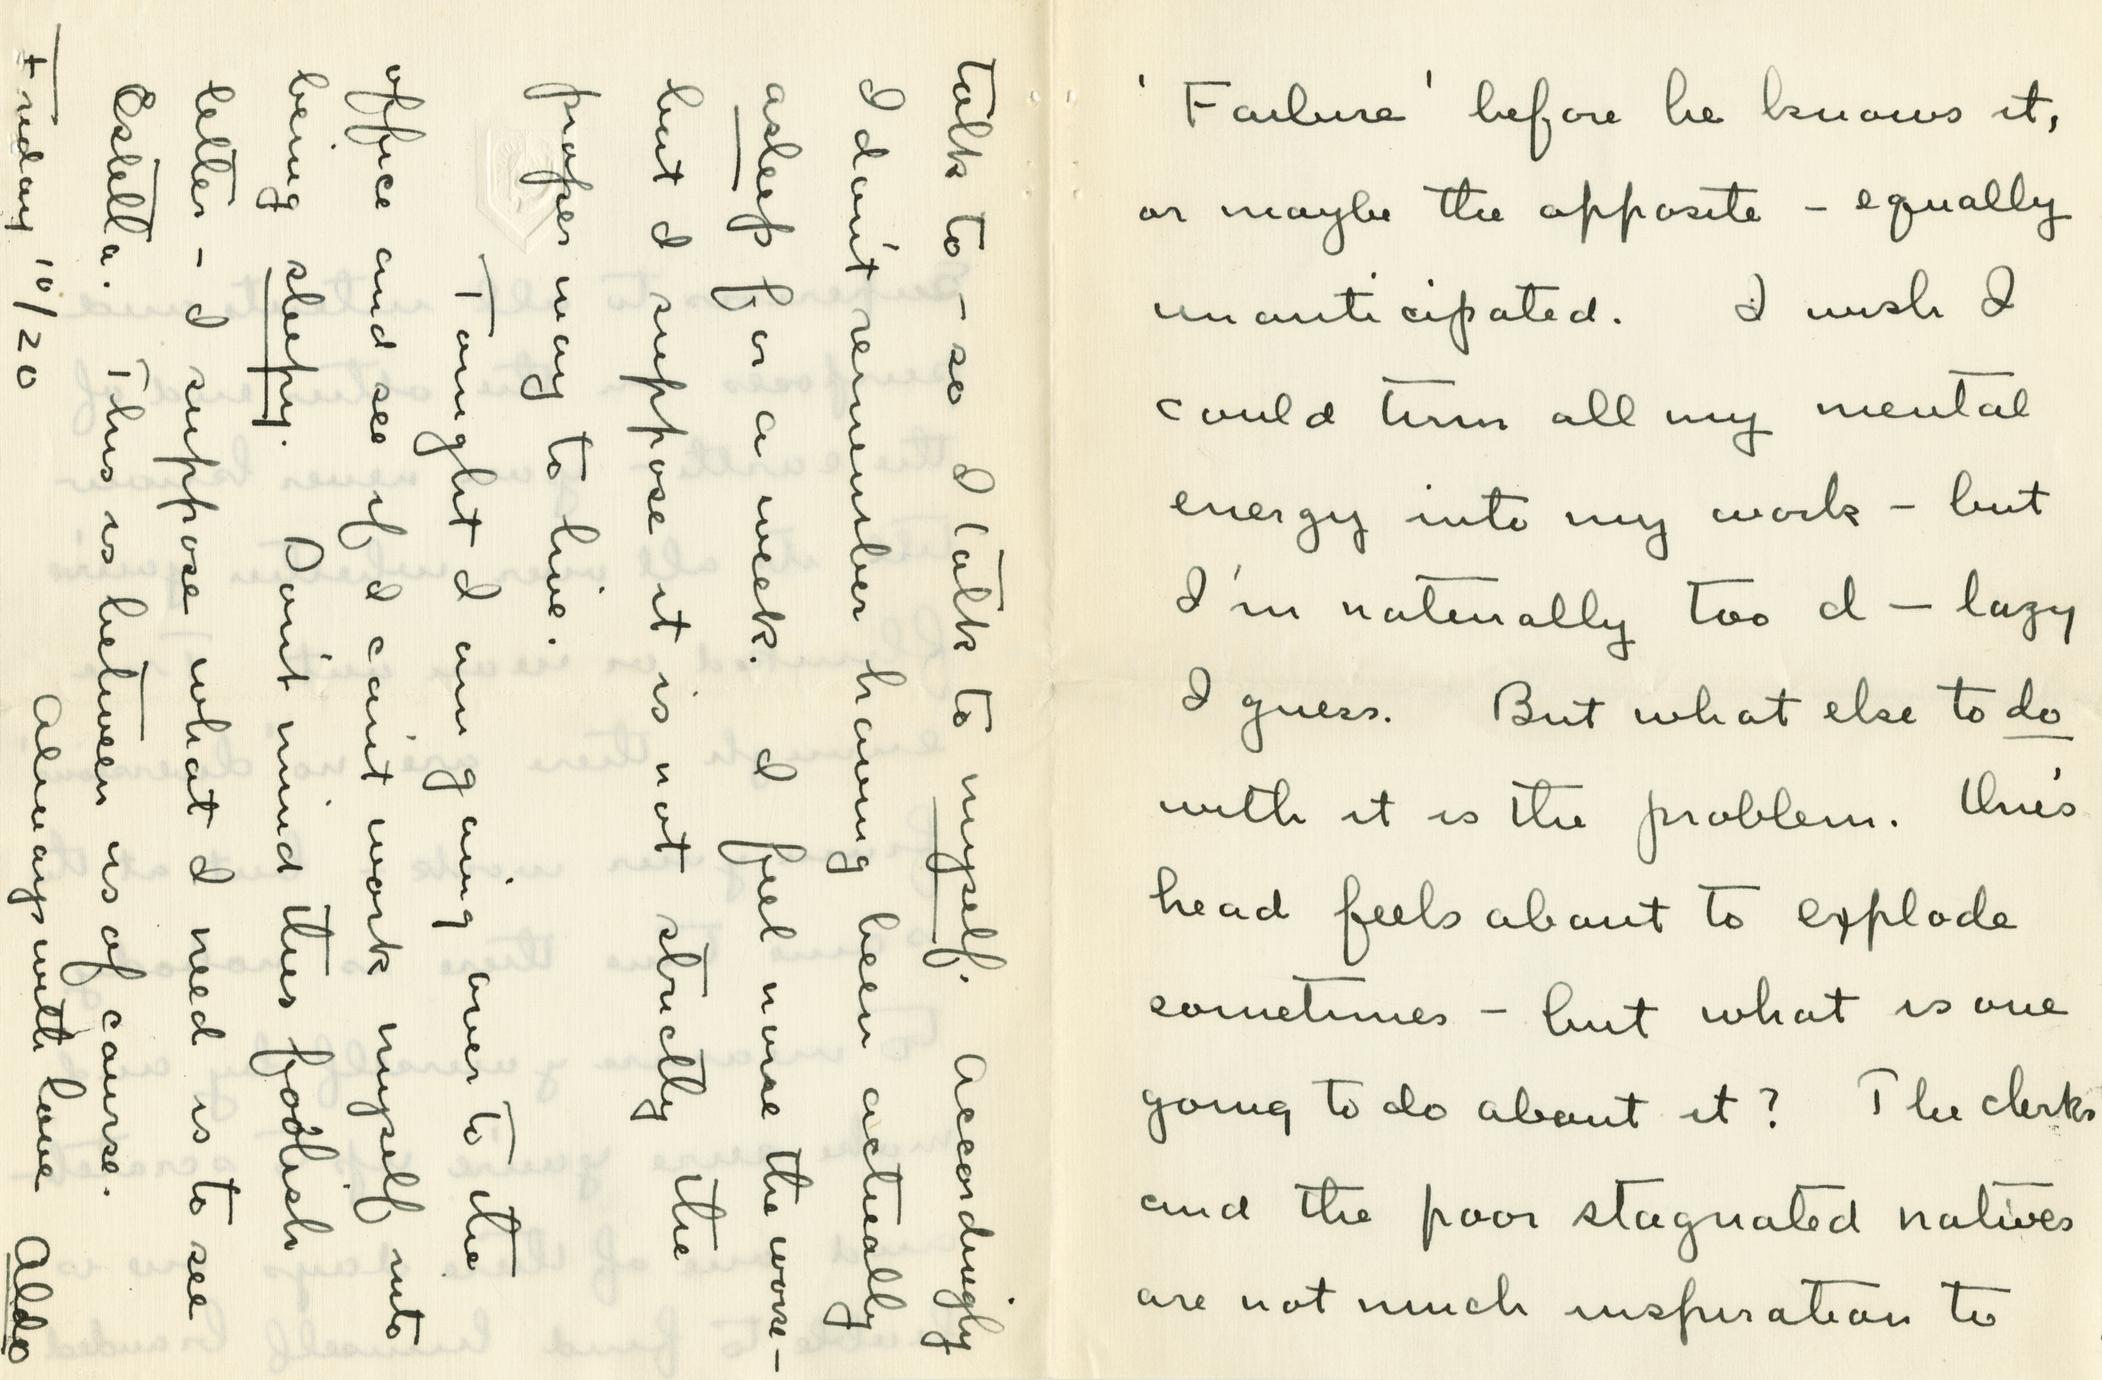 'Failure' before he knows it,
or maybe the opposite – equally
unanticipated. I wish I
could turn all my mental
energy into my work – but
I'm naturally too d — lazy
I guess. But what else to do
with it is the problem. This
head feels about to explode
sometimes – but what is one
going to do about it? The clerks
and the poor stagnated natives
are not much inspiration to
talk to – so I talk to myself. Accordingly
I don't remember having been actually
asleep for a week. I feel none the worse –
but I suppose it is not strictly the
proper way to live.
Tonight I am going over to the
office and see if I can't work myself into
being sleepy. Don't mind this foolish
letter – I suppose what I need is to see
Estella. This is between us of course.
Always with love Aldo
Friday 10/20